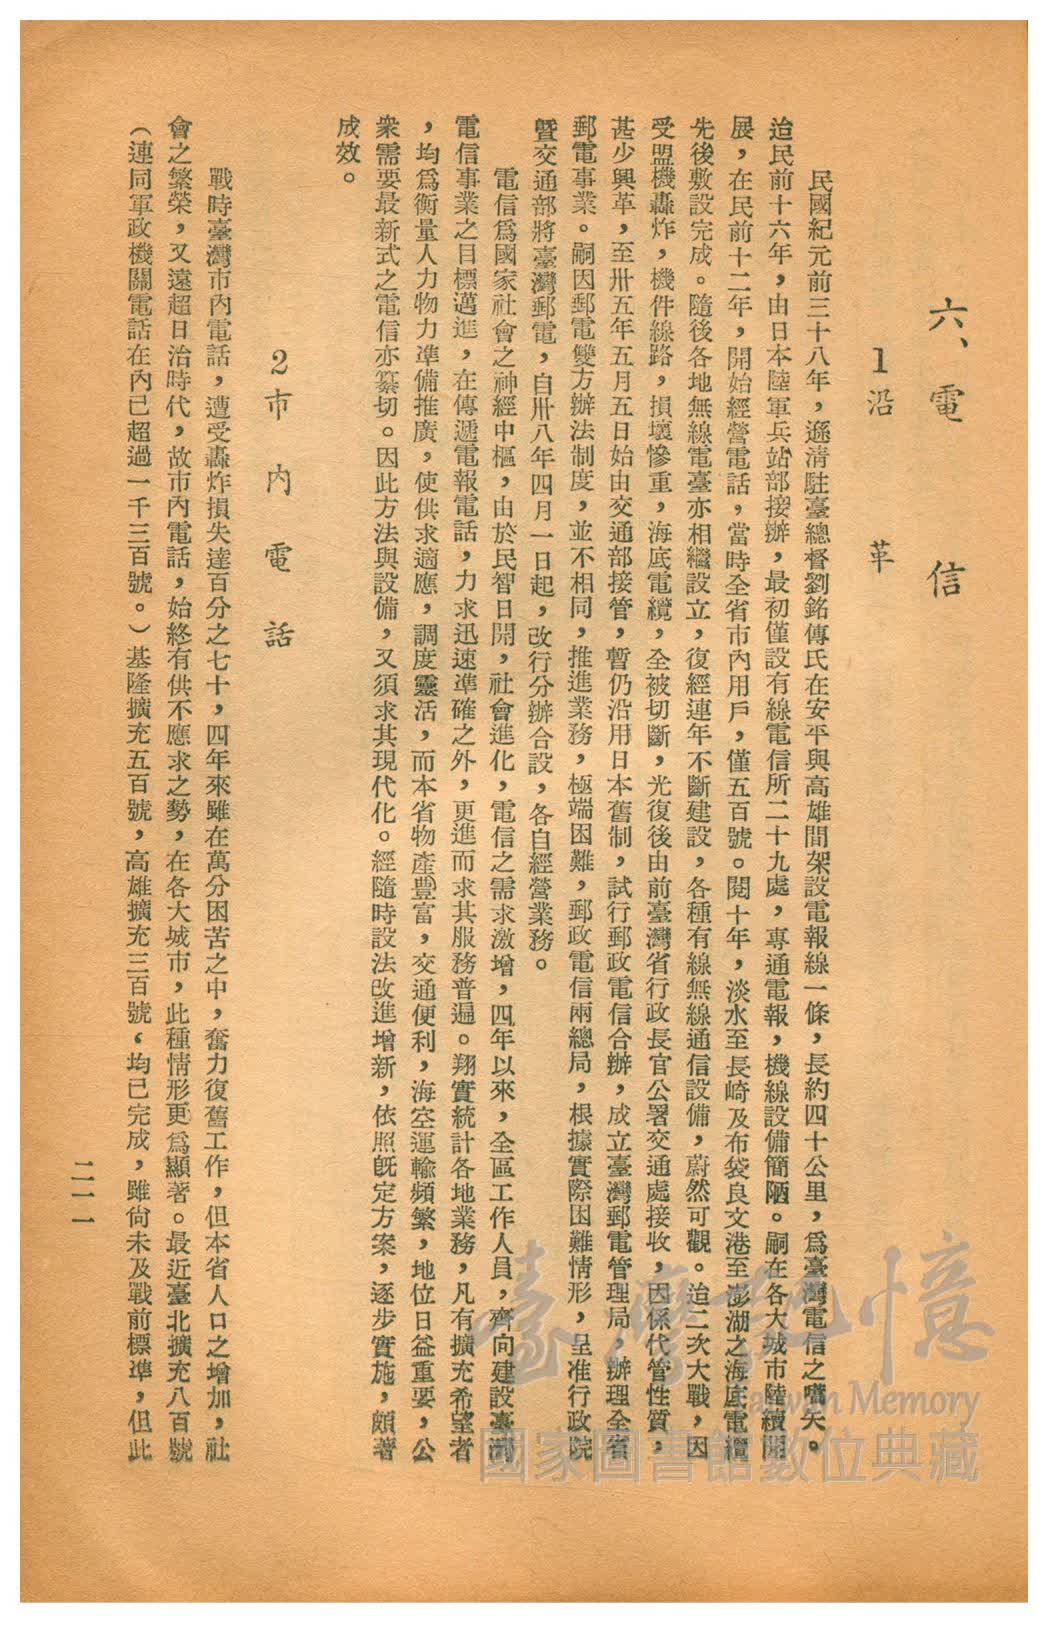 六、電信
1沿革
民國紀元前三十八年，遜清駐臺總督劉銘傳氏在安平與高雄間架設電報線一條，長約四十公里，爲臺灣電信之嚆矢。
迨民前十六年，由日本陸軍兵站部接辦，最初僅設有線電信所二十九處，專通電報，機線設備簡陋。嗣在各大城市陸續開
展，在民前十二年，開始經營電話，當時全省市內用戶，僅五百號。閱十年，淡水至長崎及布袋良文港至澎湖之海底電纜
先後敷設完成。隨後各地無線電臺亦相繼設立，復經連年不斷建設，各種有線無線通信設備，蔚然可觀。迨二次大戰，因
受盟機轟炸，機件線路，損壞慘重，海底電纜，全被切斷，光復後由前臺灣省行政長官公署交通處接收，因係代管性質，
甚少興革，至卅五年五月五日始由交通部接管，暫仍沿用日本舊制，試行郵政電信合辦，成立臺灣郵電管理局，辦理全省
郵電事業。嗣因郵電雙方辦法制度，並不相同，推進業務，極端困難，郵政電信兩總局，根據實際困難情形，呈准行政院
暨交通部將臺灣郵電，自卅八年四月一日起，改行分辦合設，各自經營業務。
電信爲國家社會之神經中樞，由於民智日開，社會進化，電信之需求激增，四年以來，全區工作人員，齊向建設臺灣
電信事業之目標邁進，在傳遞電報電話，力求迅速準確之外，更進而求其服務普遍。翔實統計各地業務，凡有擴充希望者
，均爲衡量人力物力準備推廣，使供求適應，調度靈活，而本省物產豐富，交通便利，海空運輸頻繁，地位日益重要，公
衆需要最新式之電信亦綦切。因此方法與設備，又須求其現代化。經隨時設法改進增新，依照既定方案，逐步實施，頗著
成效。
2市內電話
戰時臺灣市內電話，遭受轟炸損失達百分之七十，四年來雖在萬分困苦之中，奮力復舊工作，但本省人口之增加，社
會之繁榮，又遠超日治時代，故市內電話，始終有供不應求之勢，在各大城市，此種情形更爲顯著。最近臺北擴充八百號
（連同軍政機關電話在內已超過一千三百號。）基隆擴充五百號，高雄擴充三百號，均已完成，雖尙未及戰前標準，但此
二一一
臺灣記憶
Taiwan Memory
國家圖書館數位典藏